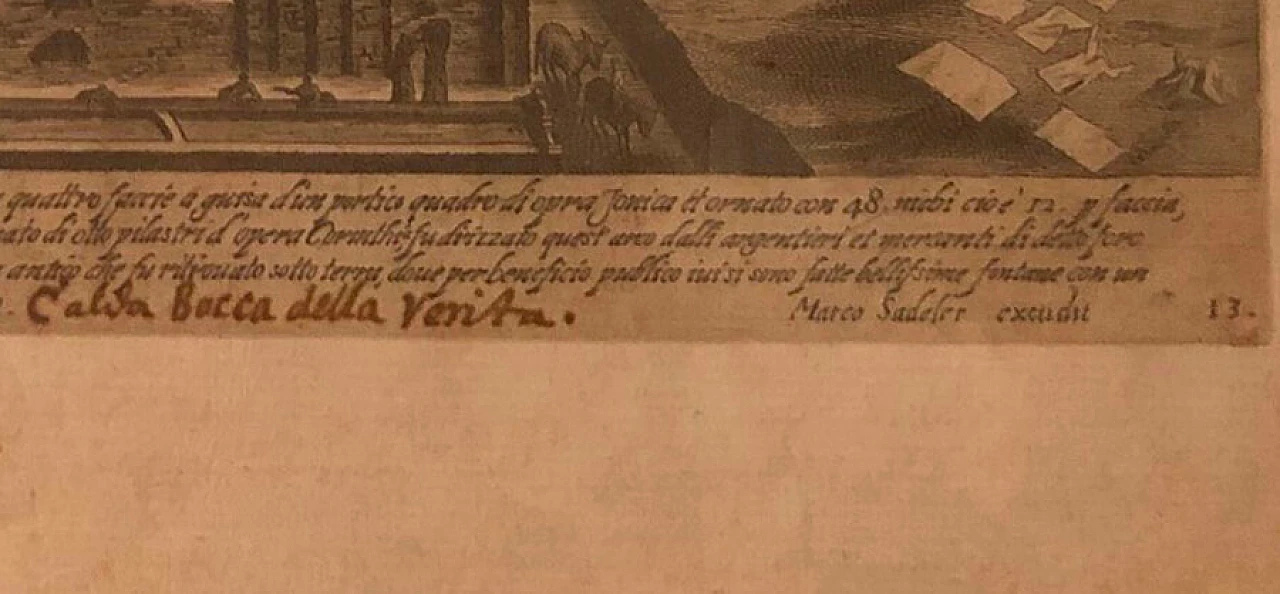 quattro faccie a guisa d'un portico quadro di opra Jonica et ornato con 48. nichi cio è 12. p faccia,
nato di otto pilastri d'opera Corinthē, fu drizzato quest'arco dalli argentieri et mercanti di detto foro
antiqo che fu ritrouato sotto terra, doue per beneficio publico iui si sono fatte bellissime fontane con un
Calda Bocca della Verita. Marco Sadeler excudit 13.